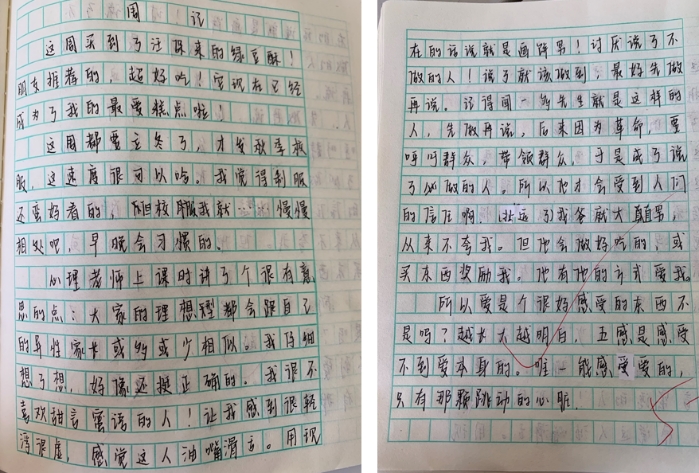 周记
这周买到了汪陈来的绿豆酥！
朋友推荐的，超好吃！它现在已经
成为了我的最爱糕点啦！
这周都要立冬了，才发秋季校
服，这速度很可以哈。我觉得制服
还蛮好看的，但校服我就慢慢
相处吧，早晚会习惯的。
心理老师上课时讲了个很有意
思的点：大家的理想型都会跟自己
的异性家长或多或少相似。我仔细
想了想，好像还挺正确的。我很不
喜欢甜言蜜语的人！让我感到很轻
浮很虚，感觉这人油嘴滑舌。用现
在的话说就是画饼男！讨厌说了不
做的人！说了就该做到，最好先做
再说。记得闻一多先生就是这样的
人，先做再说，后来因为革命，要
呼吁群众，带领群众，于是成了说
了必做的人，所以他才会受到人们
的信任啊。我爸就大直男，
从来不夸我。但他会做好吃的，或
买东西奖励我。他有他的方式爱我。
所以爱是个很好感受的东西不
是吗？越长大越明白，五感是感受
不到爱本身的。唯一能感受爱的，
只有那颗跳动的心脏。